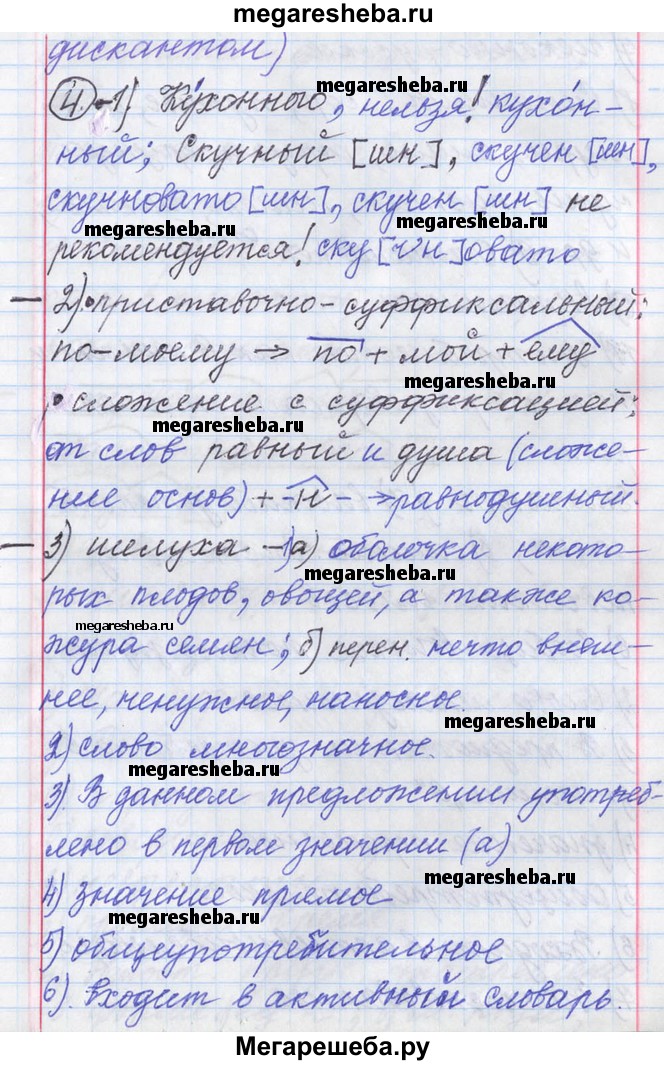 megaresheba.ru
дискантом)
megaresheba.ru
4. -1) Ку́хонного, нельзя! кухо́н-
ный; Скучный [шн], скучен [шн],
скучновато [шн], скучен [шн] не
megaresheba.ru
megaresheba.ru
рекомендуется! ску [чн]овато
– 2) • приставочно-суффиксальный:
по-моему → по + мой + ему
megaresheba.ru
• сложение с суффиксацией:
megaresheba.ru
от слов равный и душа (сложе-
ние основ) + -н- → равнодушный.
– 3) шелуха – 1) а) оболочка некото-
megaresheba.ru
рых плодов, овощей, а также ко-
megaresheba.ru
жура семян; б) перен. нечто внеш-
нее, ненужное, наносное.
megaresheba.ru
2) слово многозначное.
megaresheba.ru
3) В данном предложении употреб-
лено в первом значении (а)
megaresheba.ru
4) значение прямое
megaresheba.ru
5) общеупотребительное
6). входит в активный словарь.
Мегарешеба.ру